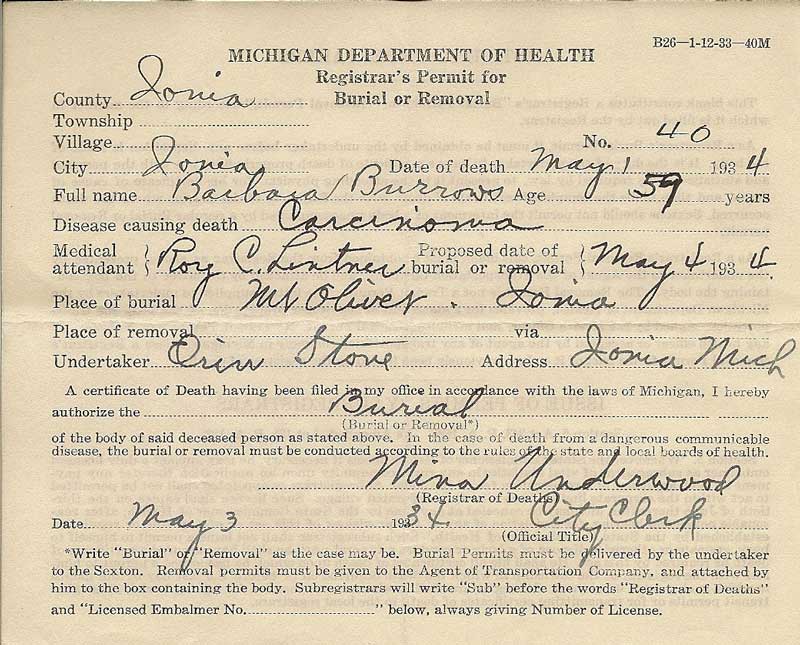 B26—1-12-33—40M
MICHIGAN DEPARTMENT OF HEALTH
Registrar's Permit for
Burial or Removal
County Ionia
Township
Village No. 40
City Ionia Date of death May 1 1934
Full name Barbara Burrows Age 59 years
Disease causing death Carcinoma
Medical attendant } Roy C. Lintner Proposed date of burial or removal } May 4 1934
Place of burial Mt Olivet. Ionia
Place of removal via
Undertaker Orin Stone Address Ionia Mich
A certificate of Death having been filed in my office in accordance with the laws of Michigan, I hereby
authorize the Burial
(Burial or Removal*)
of the body of said deceased person as stated above. In the case of death from a dangerous communicable
disease, the burial or removal must be conducted according to the rules of the state and local boards of health.
Mina Underwood
(Registrar of Deaths)
Date May 3 1934 City Clerk
(Official Title)
*Write "Burial" or "Removal" as the case may be. Burial Permits must be delivered by the undertaker
to the Sexton. Removal permits must be given to the Agent of Transportation Company, and attached by
him to the box containing the body. Subregistrars will write "Sub" before the words "Registrar of Deaths"
and "Licensed Embalmer No. " below, always giving Number of License.